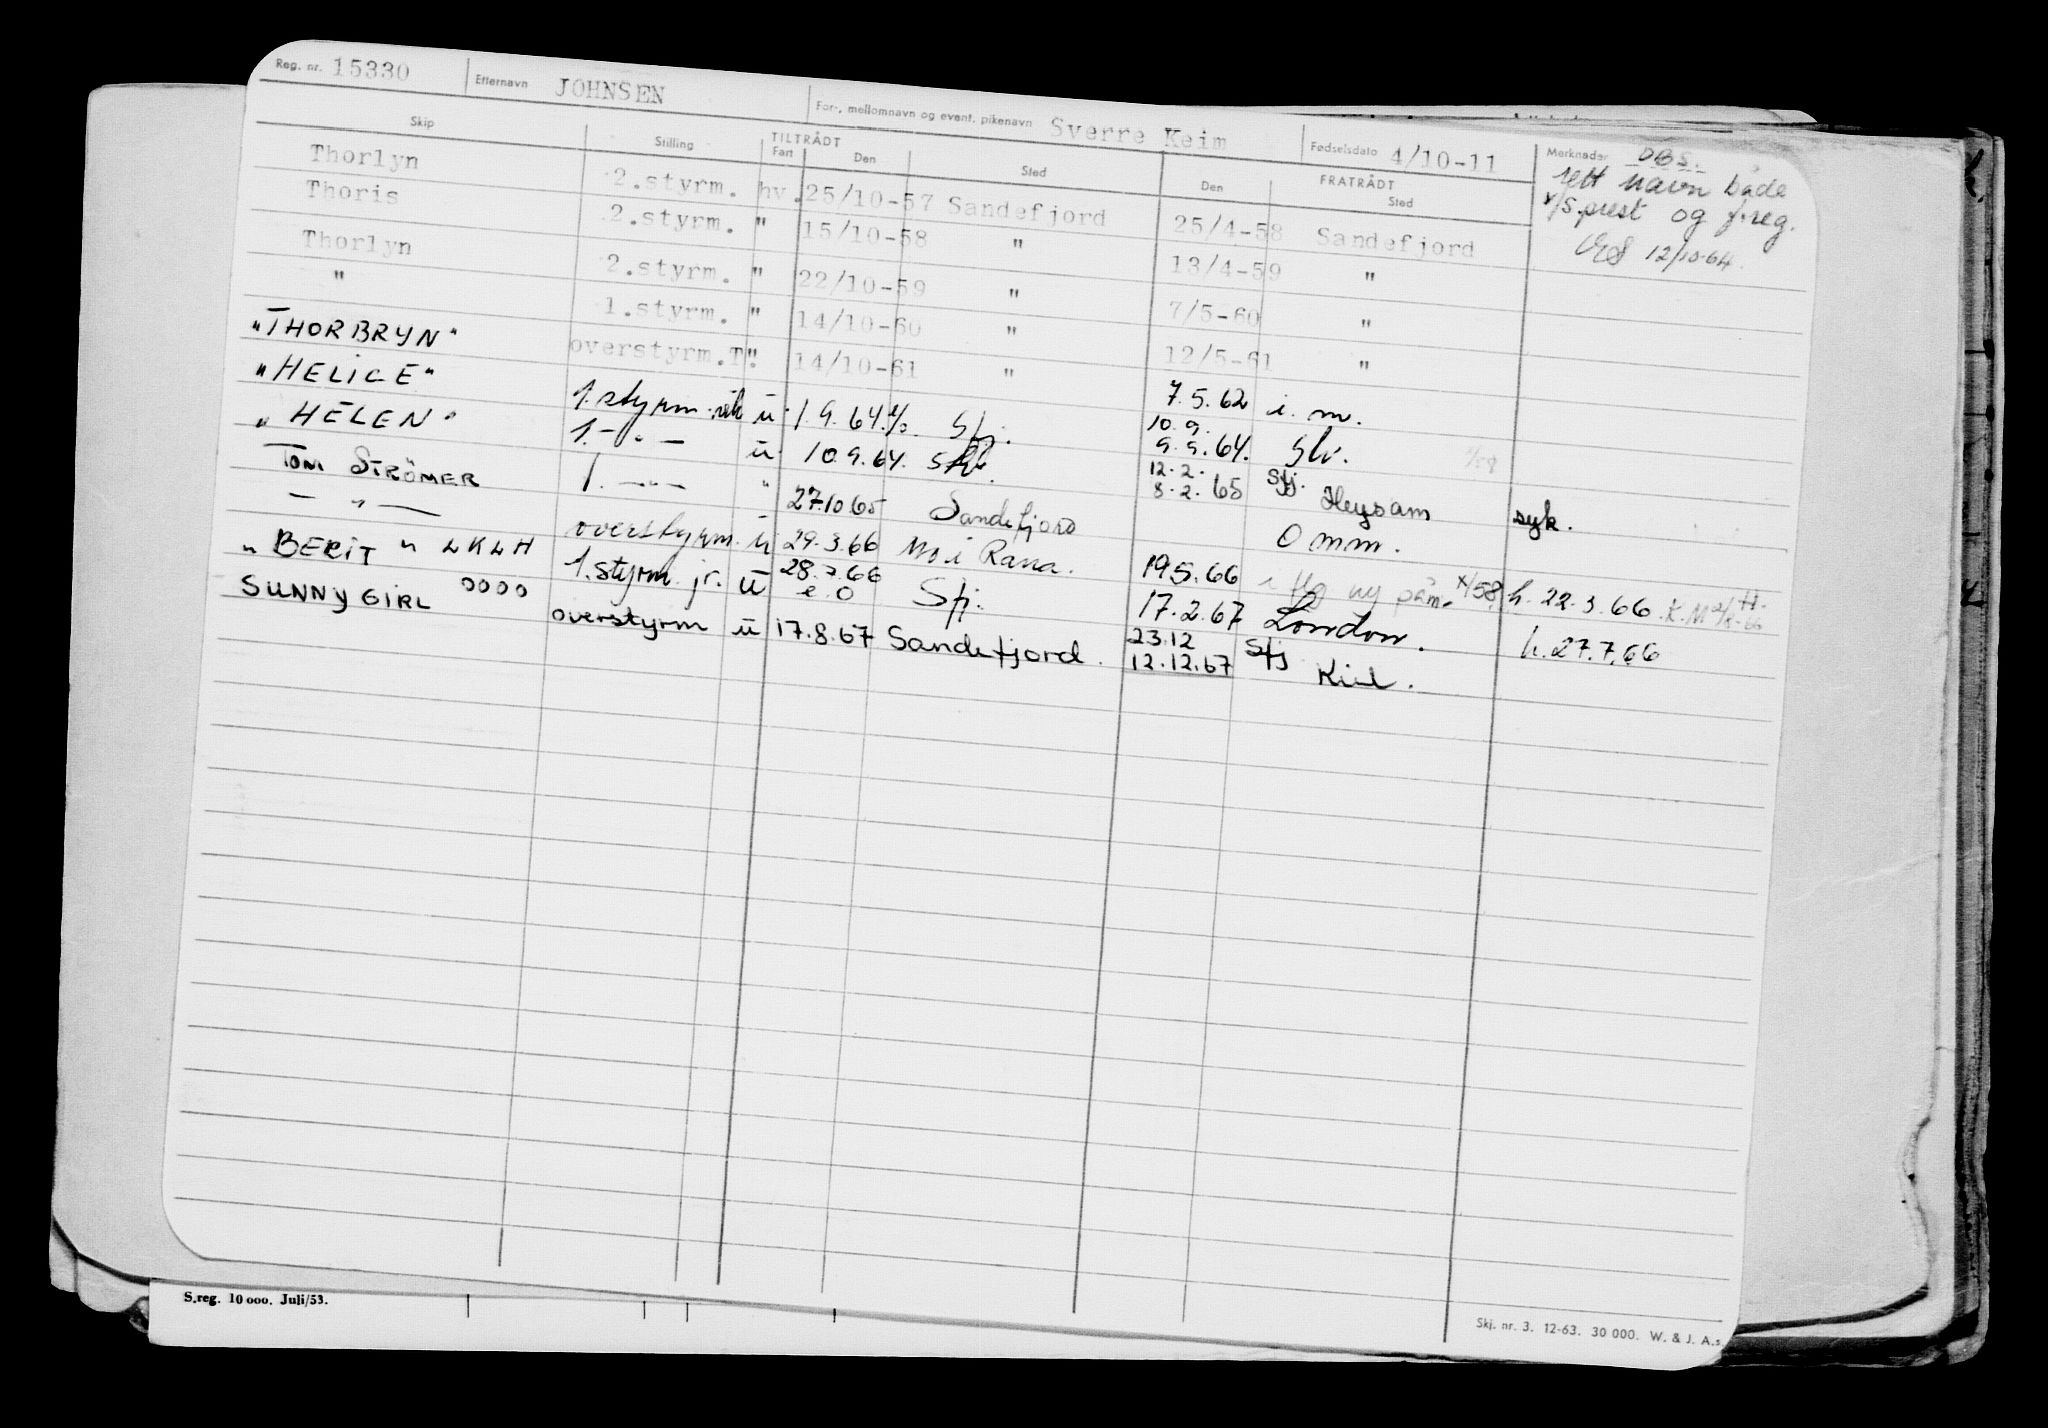 Reg. nr. 15330 Etternavn JOHNSEN For-, mellomnavn og event. pikenavn Sverre Keim Fødselsdato 4/10-11 Merknader OBS.
Skip Stilling TILTRÅDT Fart Den Sted FRATRÅDT Den Sted
rett navn både
s.prest og f.reg.
12/10-64.
Thorlyn 2.styrm. hv. 25/10-57 Sandefjord 25/4-58 Sandefjord
Thoris 2.styrm. " 15/10-58 " 13/4-59 "
Thorlyn 2.styrm. " 22/10-59 " 7/5-60 "
" 1.styrm. " 14/10-60 " 12/5-61 "
"THORBRYN" overstyrm.T". 14/10-61 " 7.5.62 i. m.
"HELICE" 1. styrm. u. 1.9.64. Sfj. 10.9. 9.9.64. Slv.
"HELEN" 1. - " - u. 10.9.64. 12.2. 8.2.65 Sfj. Heysam syk.
TOM STRÖMER 1. - " - " 27.10.65 Sandefjord Omm.
- " - overstyrm. u 29.3.66 Mo i Rana. 19.5.66 ny påm. x/58 h. 22.3.66.
"BERIT" LKLH 1. styrm. jr. u 28.7.66 e.O Sfj. 17.2.67 London. h. 27.7.66
SUNNY GIRL OOOO overstyrm u 17.8.67 Sandefjord. 23.12 12.12.67 Sfj Kiel.
S.reg. 10 000. Juli/53.
Skj. nr. 3. 12-63. 30 000. W. & J. A.s